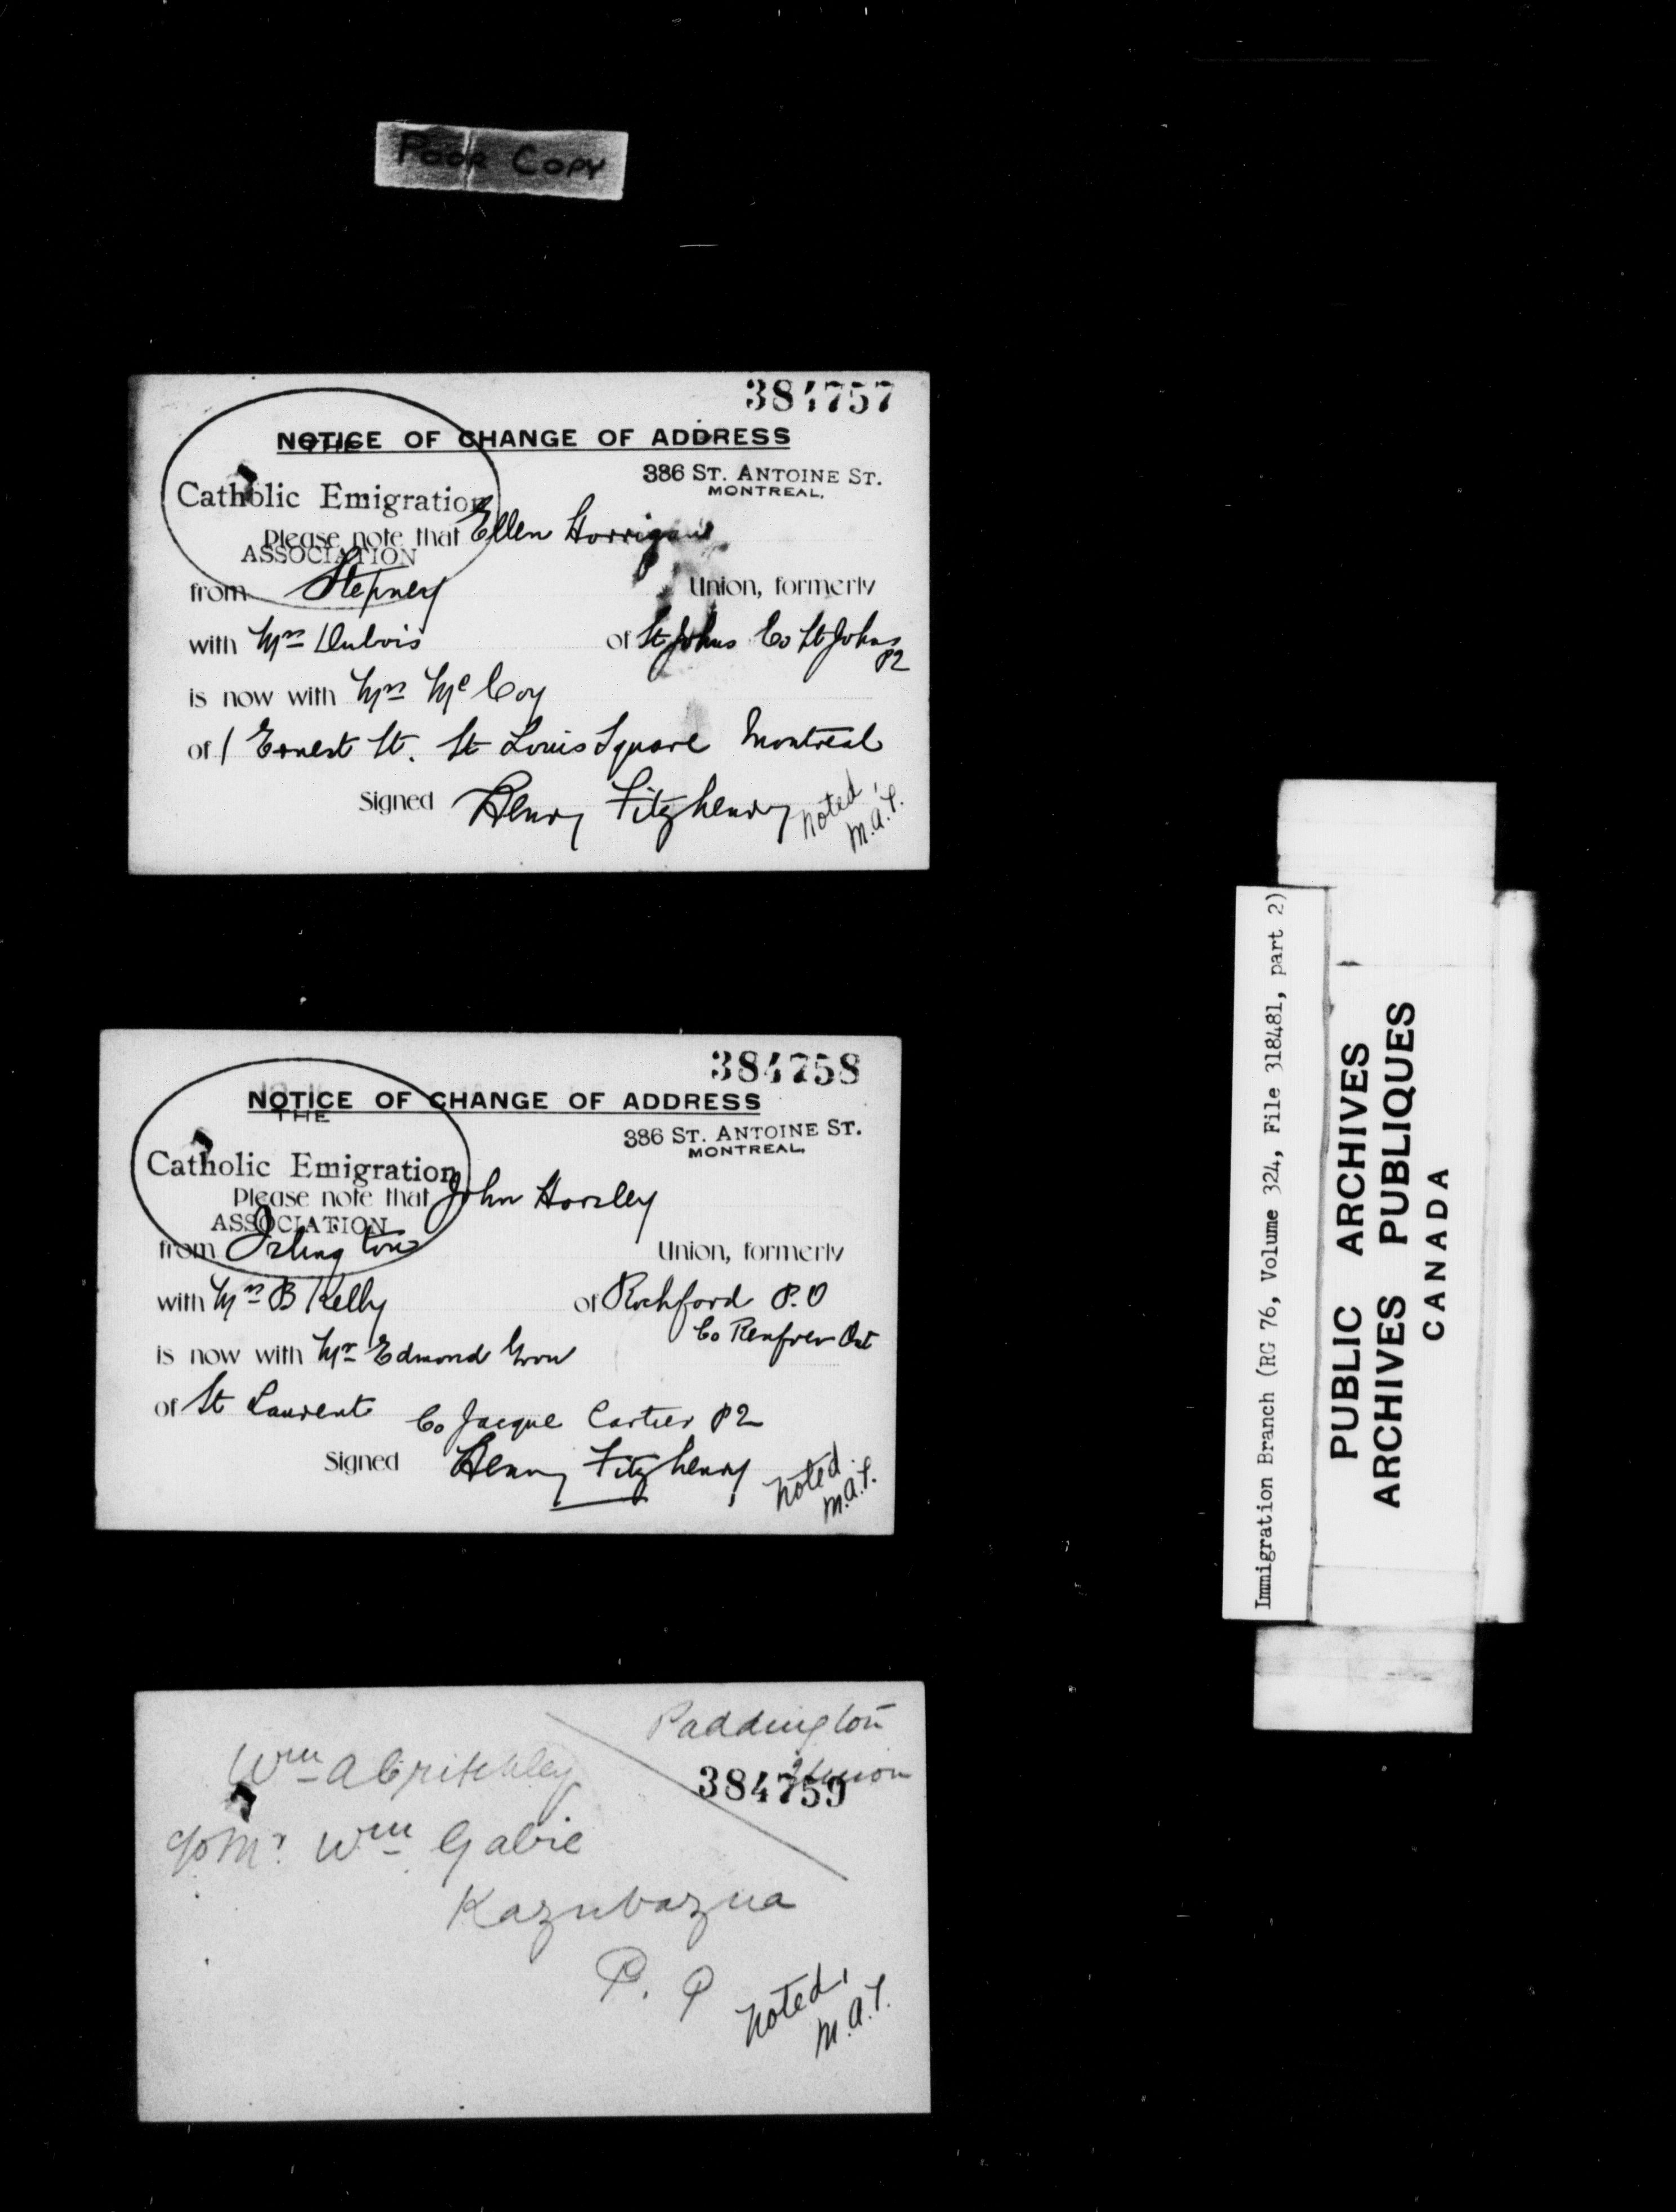 POOR COPY
384757
NOTICE OF CHANGE OF ADDRESS
THE
386 ST. ANTOINE ST.
MONTREAL.
Catholic Emigration
Please note that Ellen Horrigan
ASSOCIATION
from Stepney Union, formerly
with Mrs Dubois of St Johns Co St Johns
PQ
is now with Mrs McCoy
of 1 Ernest St. St Louis Square Montreal
Signed Henry Fitzhenry
Noted,
M.A.F.
384758
NOTICE OF CHANGE OF ADDRESS
THE
386 ST. ANTOINE ST.
MONTREAL.
Catholic Emigration
Please note that John Horsley
ASSOCIATION
from Islington Union, formerly
with Mrs B Kelly of Rochford P.O
Co Renfrew Ont
is now with Mr Edmond
of St Laurent Co Jacque Cartier PQ
Signed Henry Fitzhenry
Noted.
M.A.F.
Paddington
Union
384759
Wm A Critchley
c/o Mr. Wm Gabie
Kazubazua
P. Q
Noted,
M.A.F.
Immigration Branch (RG 76, Volume 324, File 318481, part 2)
PUBLIC ARCHIVES
ARCHIVES PUBLIQUES
CANADA